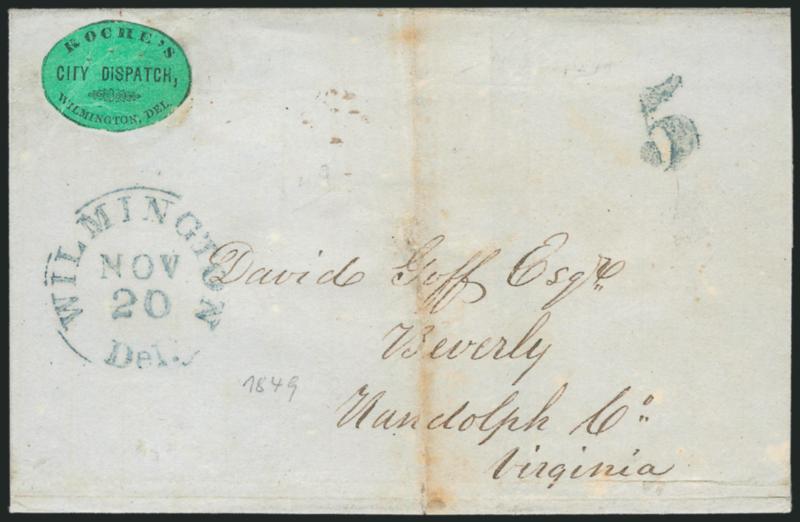 ROCHE'S
CITY DISPATCH,
WILMINGTON, DEL.
5
WILMINGTON
NOV
20
Del.
David Goff Esqre
Beverly
Randolph Co
Virginia
1849